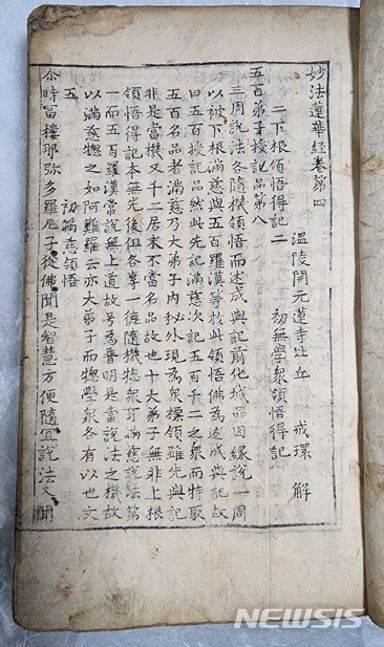 妙法蓮華經卷第四
溫陵開元蓮寺比丘 戒環 解
二下根領悟得記二 初無學衆領悟得記
五百弟子授記品第八
三周說法各隨機領悟而述成與記前化城品因緣說一周
以被下根滿慈與五百羅漢等於此領悟佛爲述成與記故
曰五百授記品然此先記滿慈次記五百千二之衆而特取
五百名品者滿慈乃大弟子內秘外現爲衆標領雖先與記
非是當機又千二居末不當名品故也十大弟子無非上根
領悟得記本無先後但各享一德隨機揔衆耳滿慈說法第
一而五百羅漢當說無上道故号爲普明是當說法之機故
以滿慈揔之如阿難羅云亦大弟子而揔學衆各有以也文
五 初滿慈領悟
尒時冨樓那弥多羅尼子從佛聞是智慧方便隨冝說法又聞
NEWSIS